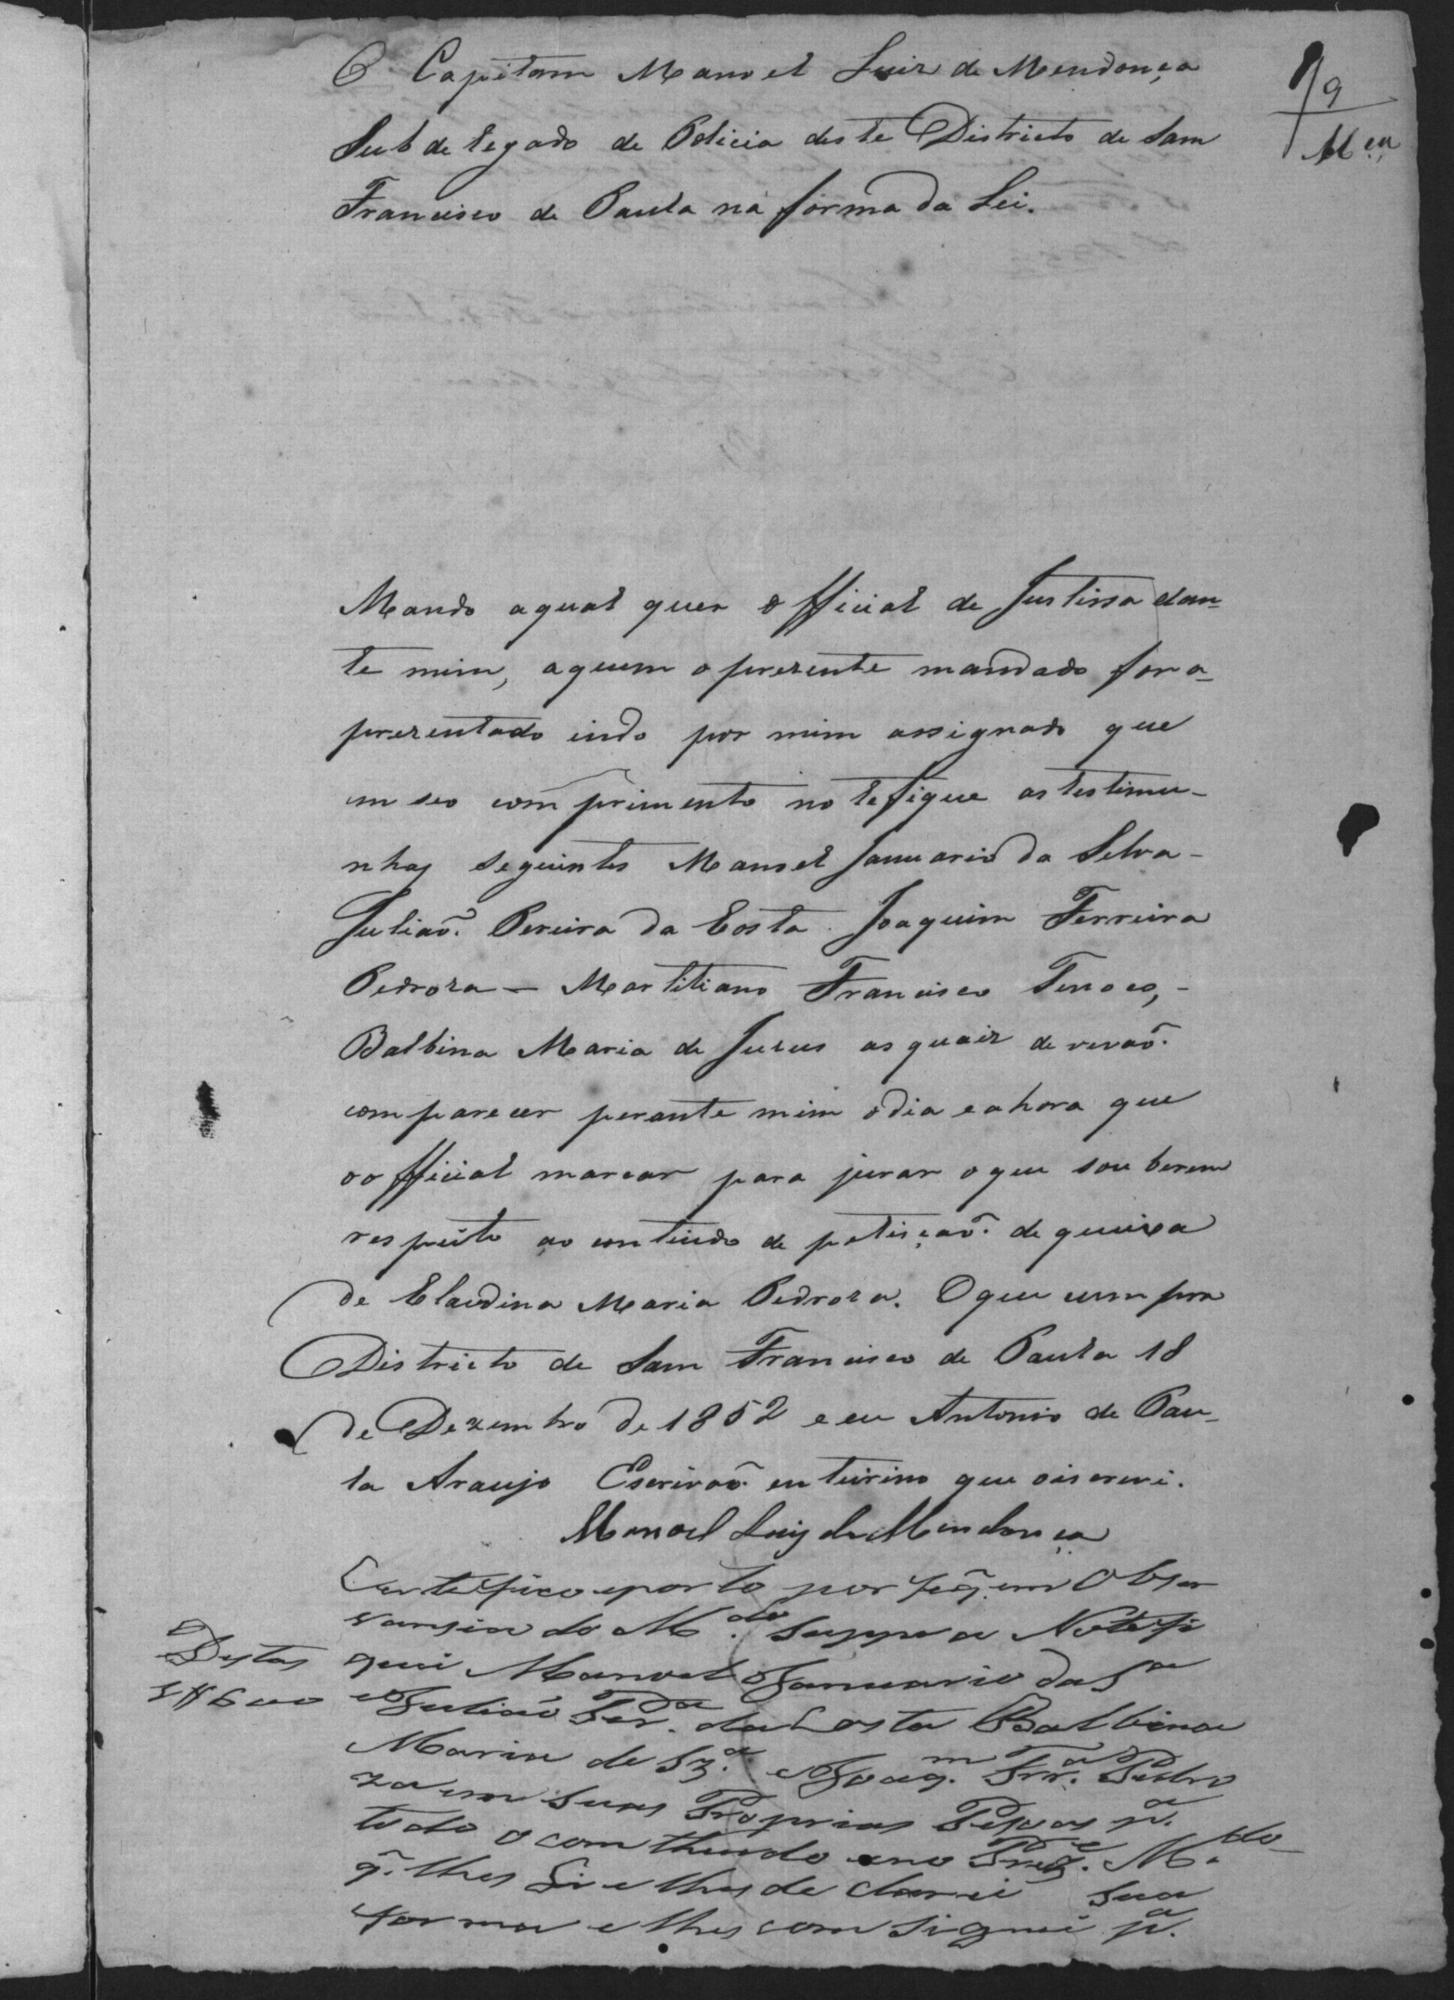 9
Mça
O Capitam Manoel Luiz de Mendonça
Sub de legado de Policia deste Districto de Sam
Francisco de Paula na forma da Lei.
Mando a qual quer official de Justissa dian-
te mim, aquem o prezente mandado for a-
prezentado indo por mim assignado que
em seo comprimento notefique as testimu-
nhas seguintes Manoel Januario da Selva-
Julião Pereira da Costa. Joaquim Ferreira
Pedroza - Martiliano Francisco Tinoco, -
Balbina Maria de Jezus as quaiz deverão
comparecer perante mim o dia e a hora que
o official marcar para jurar o que souberem
respeito ao contiudo de petisção de queixa
de Claudina Maria Pedroza. O que cumpra
Districto de Sam Francisco de Paula 18
de Dezembro de 1852 e eu Antonio de Pau-
la Araujo Escrivão enteirino que oiscrevi.
Manoel Luiz de Mendonça
Certefico e porto por fé q. em Obser
vansia do M.do suppra Notefi
quei Manoel Januario da Sa
e Julião Per.a da Costa Balbina
Maria de Jz.s e Joaq.m Frr.a Pedro
za em suas Proprias Pesoas p.a
tudo o comtheudo no Prez.e M.do
q. lhes Li e lhes declarei sua
forma e lhes comsignei p.a
Destas
3#600